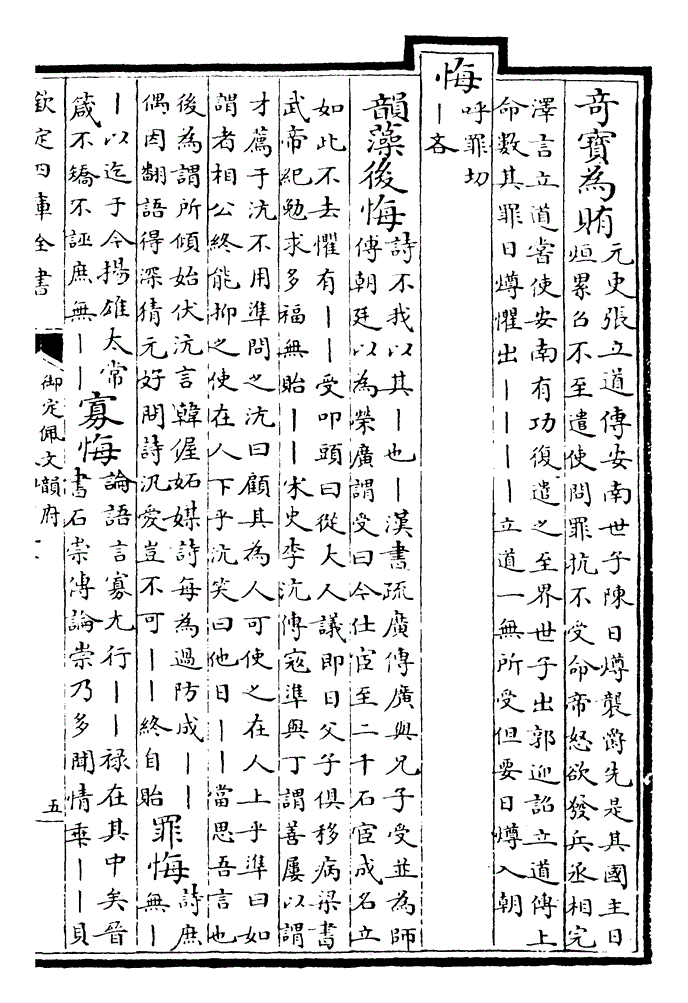 奇寶為賄
元史張立道傳安南世子陳日燇襲爵先是其國主日
烜累召不至遣使問罪抗不受命帝怒欲發兵丞相完
澤言立道嘗使安南有功復遣之至界世子出郭迎詔立道傳上
命數其罪日燇懼出丨丨丨丨立道一無所受但要日燇入朝
悔
呼罪切
丨吝
韻藻後悔
詩不我以其丨也丨漢書疏廣傳廣與兄子受並為師
傅朝廷以為榮廣謂受曰今仕宦至二千石宦成名立
如此不去懼有丨丨受叩頭曰從大人議即日父子俱移病梁書
武帝紀勉求多福無貽丨丨宋史李沆傳寇準與丁謂善屢以謂
才薦于沆不用準問之沆曰顧其為人可使之在人上乎準曰如
謂者相公終能抑之使在人下乎沆笑曰他日丨丨當思吾言也
後為謂所傾始伏沆言韓偓妬媒詩每為過防成丨丨
偶因翻語得深猜元好問詩汎愛豈不可丨丨終自貽
罪悔
詩庶
無丨
丨以迄于今揚雄太常
箴不矯不誣庶無丨丨
寡悔
論語言寡尤行丨丨祿在其中矣晉
書石崇傳論崇乃多聞情乖丨丨貝
欽定四庫全書
御定佩文韻府
五